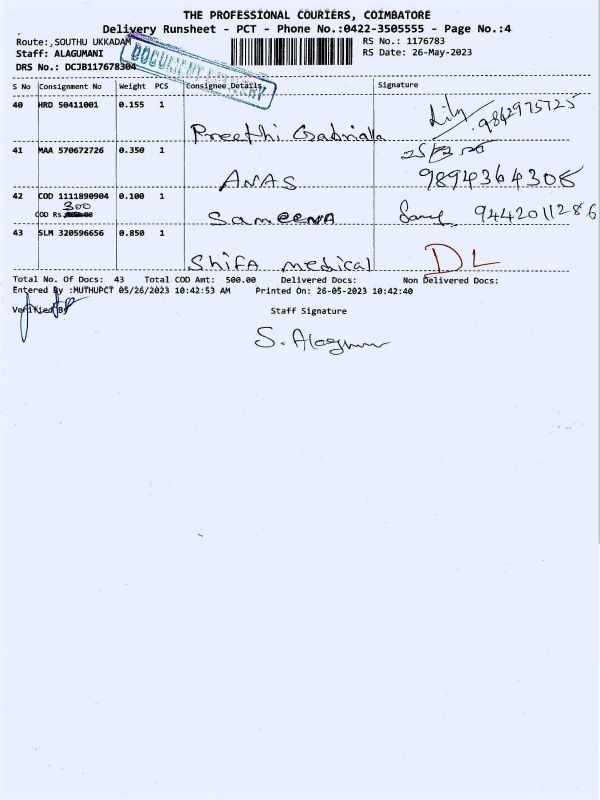 THE PROFESSIONAL COURIERS, COIMBATORE
Delivery Runsheet - PCT - Phone No.:0422-3505555 - Page No.:4
Route: SOUTHU UKKADAM
RS No.: 1176783
Staff: ALAGUMANI
RS Date: 26-May-2023
DRS No.: DCJB117678304
DOCUMENT
S No Consignment No Weight PCS Consignee Details Signature
40 HRD 50411001 0.155 1
Preethi Gabriala Lily 9842975725
41 MAA 570672726 0.350 1
ANAS 9894364308
42 COD 1111890904 0.100 1
300
COD Rs
Sameena 9442011286
43 SLM 320596656 0.850 1
Shifa medical DL
Total No. Of Docs: 43 Total COD Amt: 500.00 Delivered Docs: Non Delivered Docs:
Entered By :MUTHUPCT 05/26/2023 10:42:53 AM Printed On: 26-05-2023 10:42:40
Verified By Staff Signature